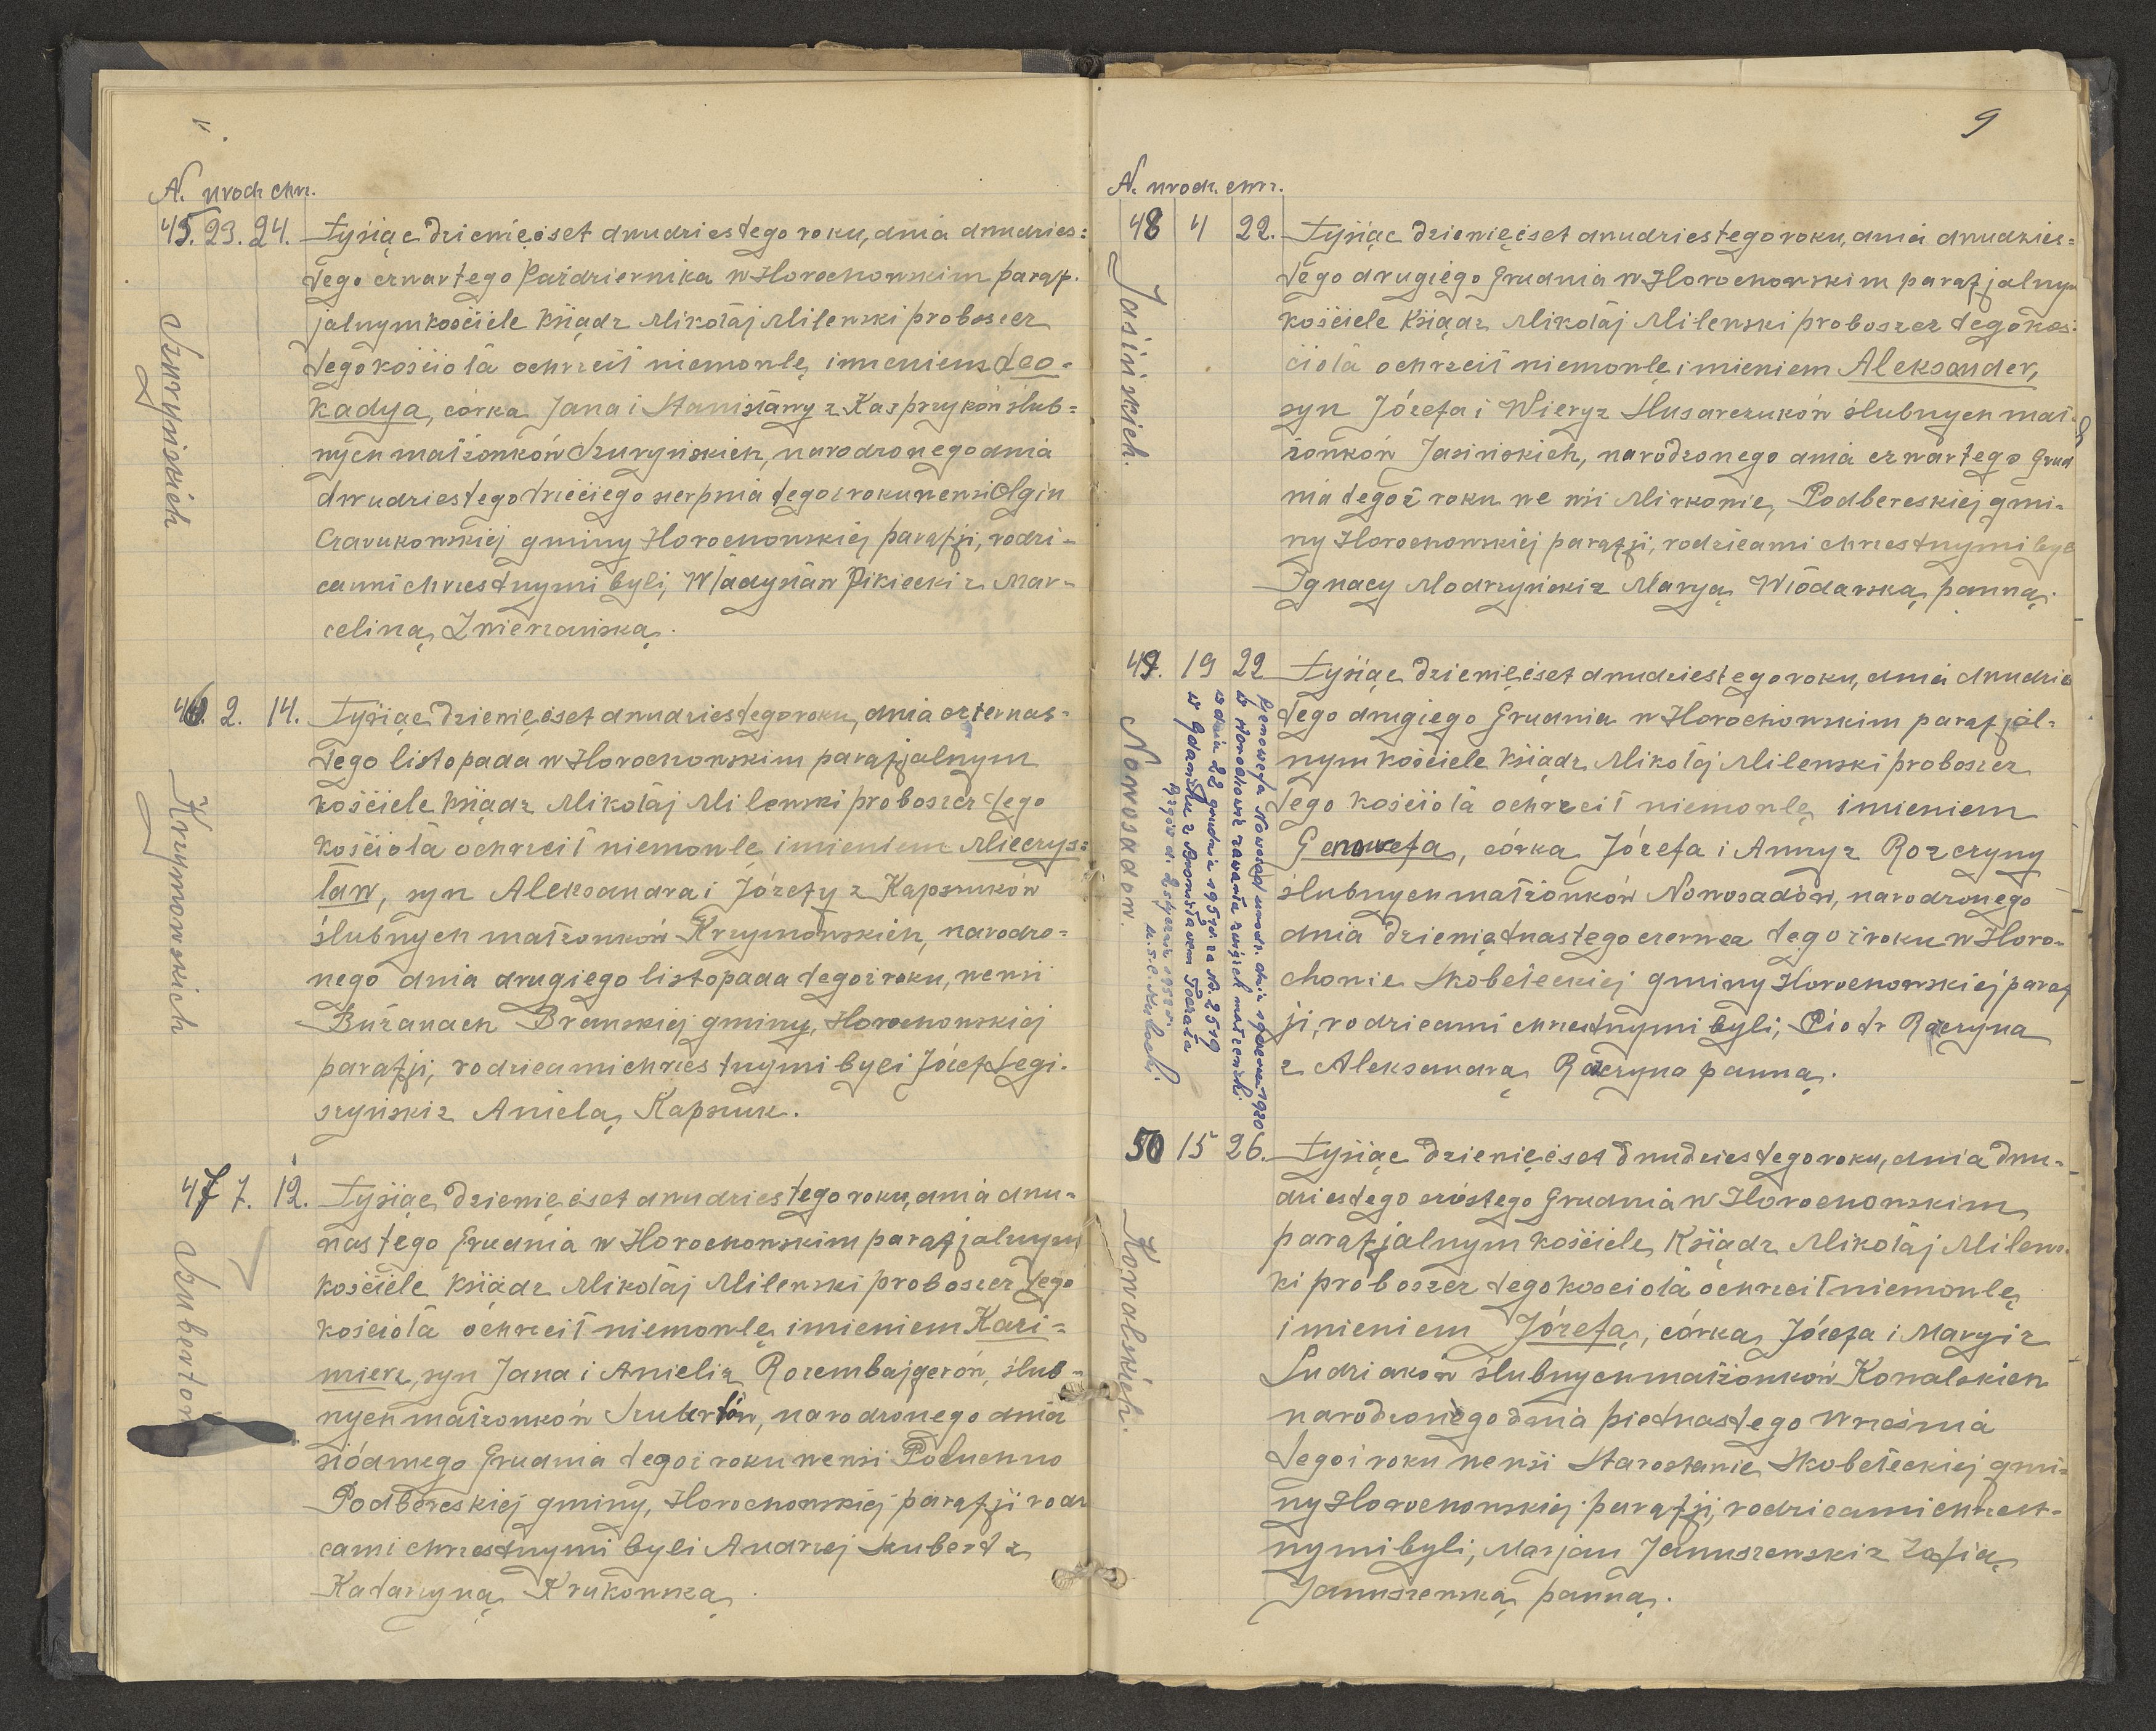 N. urodz chrz.
45. 23. 24. Tysiąc dziewięćset dwudziestego roku, dnia dwudzies=
tego czwartego Października w Horochowskim paraf-
jalnym kościele ksiądz Mikołaj Milewski proboszcz
tego kościoła ochrzcił niemowlę imieniem Leo-
kadya, córka Jana i Stanisławy z Kasprzyków ślub=
nych małżonków Szuryńskich, narodzonego dnia
dwudziestego trzeciego sierpnia tegoż roku we wsi Olgin
Czarukowskiej gminy Horochowskiej parafji, rodzi-
cami chrzestnymi byli, Władysław Pikiecki z Mar-
celiną Zwierzańską.
Szuryńskich
46. 2. 14. Tysiąc dziewięćset dwudziestego roku, dnia czternas-
tego listopada w Horochowskim parafjalnym
kościele ksiądz Mikołaj Milewski proboszcz tego
kościoła ochrzcił niemowlę imieniem Mieczys=
ław, syn Aleksandra i Józefy z Kapszuków
ślubnych małżonków Krzymowskich, narodzo=
nego dnia drugiego listopada tegoż roku, we wsi
Bużanach Branskiej gminy, Horochowskiej
parafji, rodzicami chrzestnymi byli Józef Legi-
szyński z Anielą Kapszuk.
Krzymowskich
47 7. 12. Tysiąc dziewięćset dwudziestego roku, dnia dwu-
nastego Grudnia w Horochowskim parafjalnym
kościele ksiądz Mikołaj Milewski proboszcz tego
kościoła ochrzcił niemowlę imieniem Kazi=
mierz, syn Jana i Anieli z Rozembajgerów, ślub-
nych małżonków Szubertów, narodzonego dnia
siódmego Grudnia tegoż roku we wsi Poluchno
Podbereskiej gminy, Horochowskiej parafji rodzi
cami chrzestnymi byli Andrzej Szubert z
Katarzyną Krukowską.
Szubertów
9
N. urodz. chrz.
48 4 22. Tysiąc dziewięćset dwudziestego roku, dnia dwudzies=
tego drugiego Grudnia w Horochowskim parafjalnym
kościele Ksiądz Mikołaj Milewski proboszcz tego koś-
cioła ochrzcił niemowlę imieniem Aleksander,
syn Józefa i Wiery z Ślusarczuków ślubnych mał-
żonków Jasińskich, narodzonego dnia czwartego Grud
nia tegoż roku we wsi Mirkowie, Podbereskiej gmi-
ny Horochowskiej parafji, rodzicami chrzestnymi byli
Ignacy Modrzyński z Maryą Włodarską panną.
Jasińskich.
49. 19 22 Tysiąc dziewięćset dwudziestego roku, dnia dwudzies
tego drugiego Grudnia w Horochowskim parafjal=
nym kościele Ksiądz Mikołaj Milewski proboszcz
tego kościoła ochrzcił niemowlę imieniem
Genowefa, córka Józefa i Anny z Rozczyny
ślubnych małżonków Nowosadów, narodzonego
dnia dziewiętnastego czerwca tegoż roku w Horo-
chowie Skobełeckiej gminy Horochowskiej paraf
ji, rodzicami chrzestnymi byli; Piotr Raczyna
z Aleksandrą Raczyno panną.
Nowosadów.
Genowefa Nowosad urodz. dnia 19 czerwca 1920
w Horochowie zawarła związek małżeński
w dniu 22 grudnia 1951 r. za Nr. 2519
w Gdańsku z Bronisławem
50 15 26. Tysiąc dziewięćset dwudziestego roku, dnia dwu-
dziestego szóstego Grudnia w Horochowskim
parafjalnym kościele, Ksiądz Mikołaj Milews-
ki proboszcz tego kościoła ochrzcił niemowlę
imieniem Józefa, córka Józefa i Maryi z
Ludziaków ślubnych małżonków Kowalskich
narodzonego dnia piętnastego Września
tegoż roku we wsi Starostawie Skobełeckiej gmi-
ny Horochowskiej parafji, rodzicami chrzest-
nymi byli, Marjan Januszewski z Zofią
Januszewską panną.
Kowalskich.